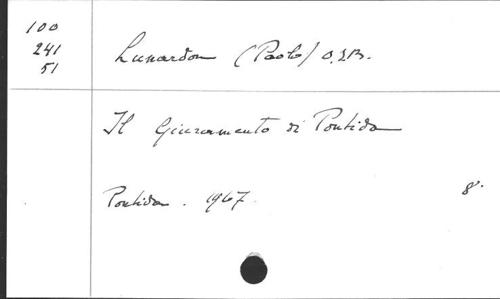 100
241
51
Lunardon (Paolo) O.S.B.
Il Giuramento di Pontida
Pontida. 1967. 8°.